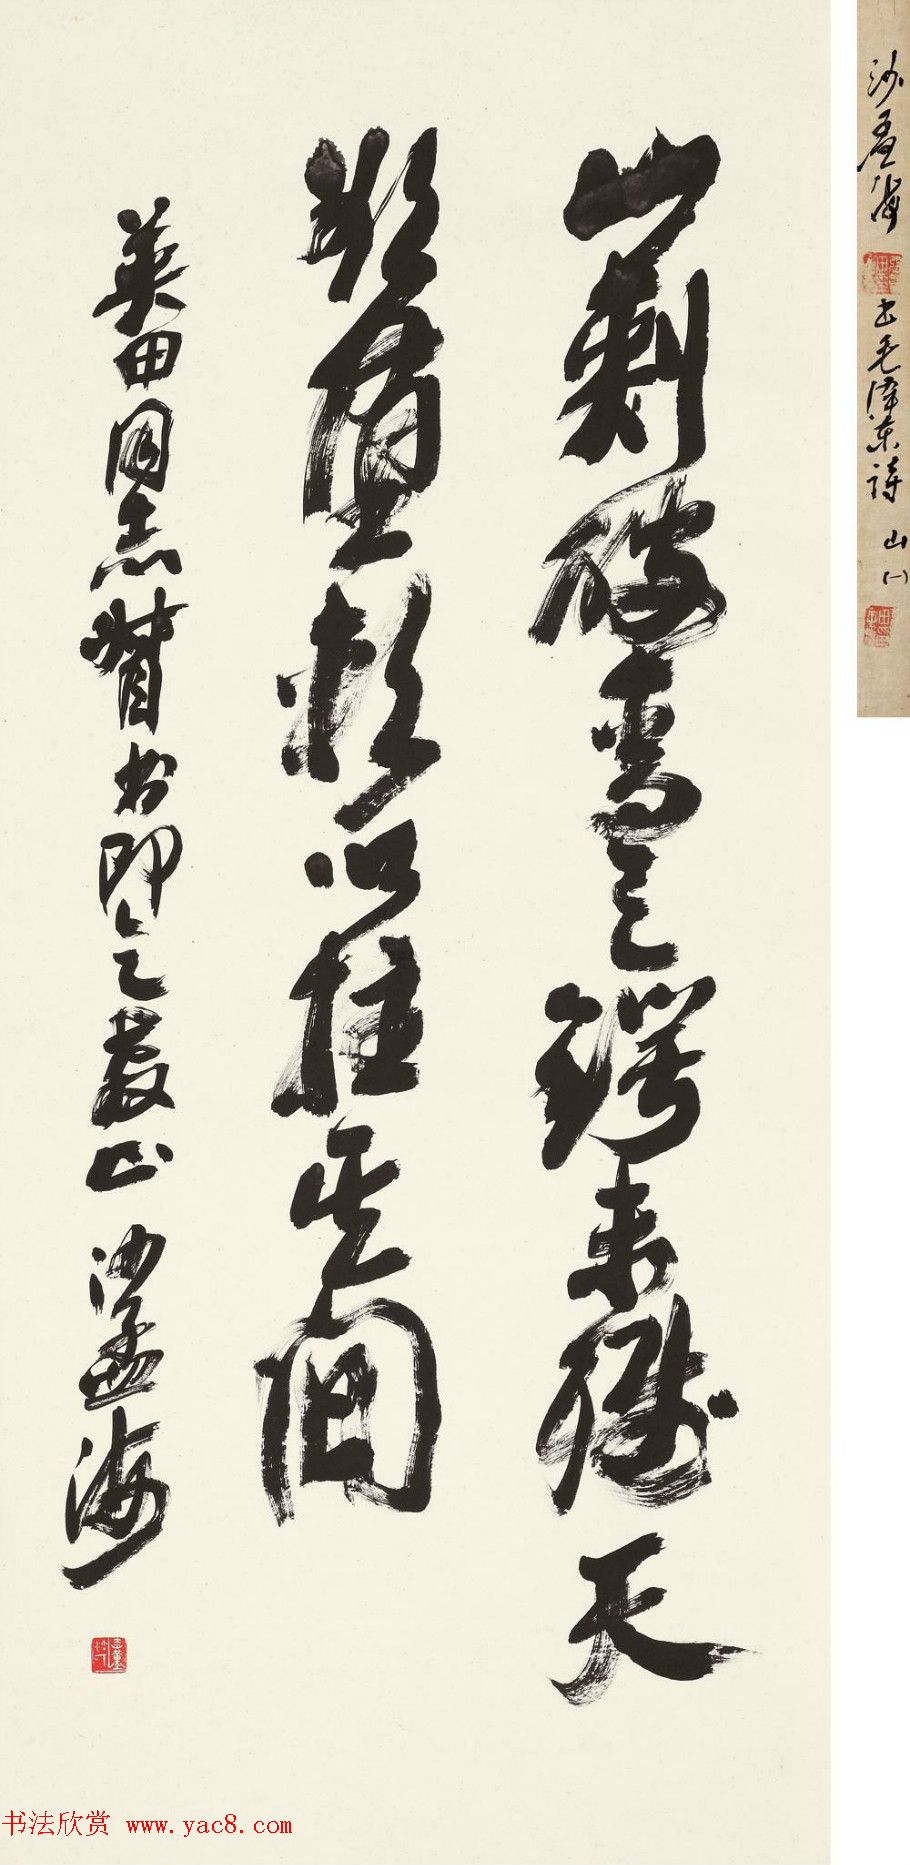 沙孟海 书毛泽东诗 山(一)
山刺破青天鍔未殘天
欲墮賴以拄其間
英田同志督书即乞教正 沙孟海
书法欣赏 www.yac8.com